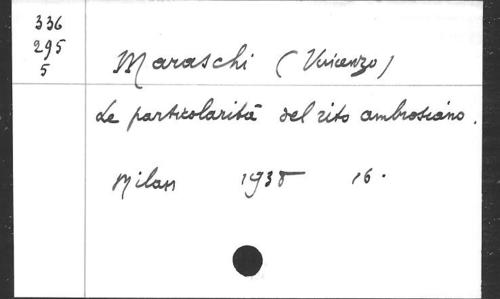 336
295
5
Maraschi (Vincenzo)
Le particolarità del rito ambrosiano.
Milan 1938 16.